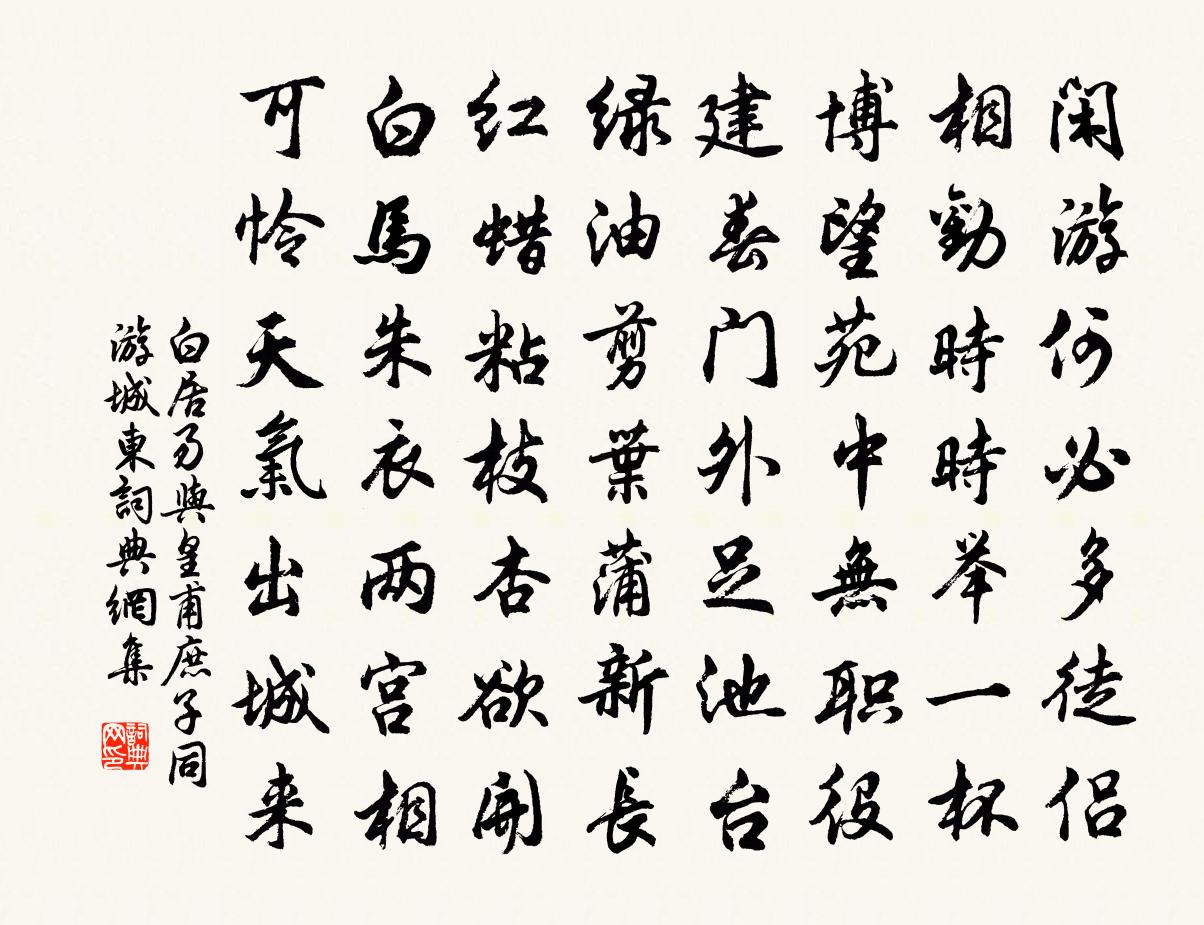 闲游何必多徒侣
相勸時時举一杯
博望苑中無职役
建春门外足池台
绿油剪葉蒲新長
红蜡粘枝杏欲開
白馬朱衣两宫相
可怜天氣出城来
白居易與皇甫庶子同
游城東詞典網集
詞典网印